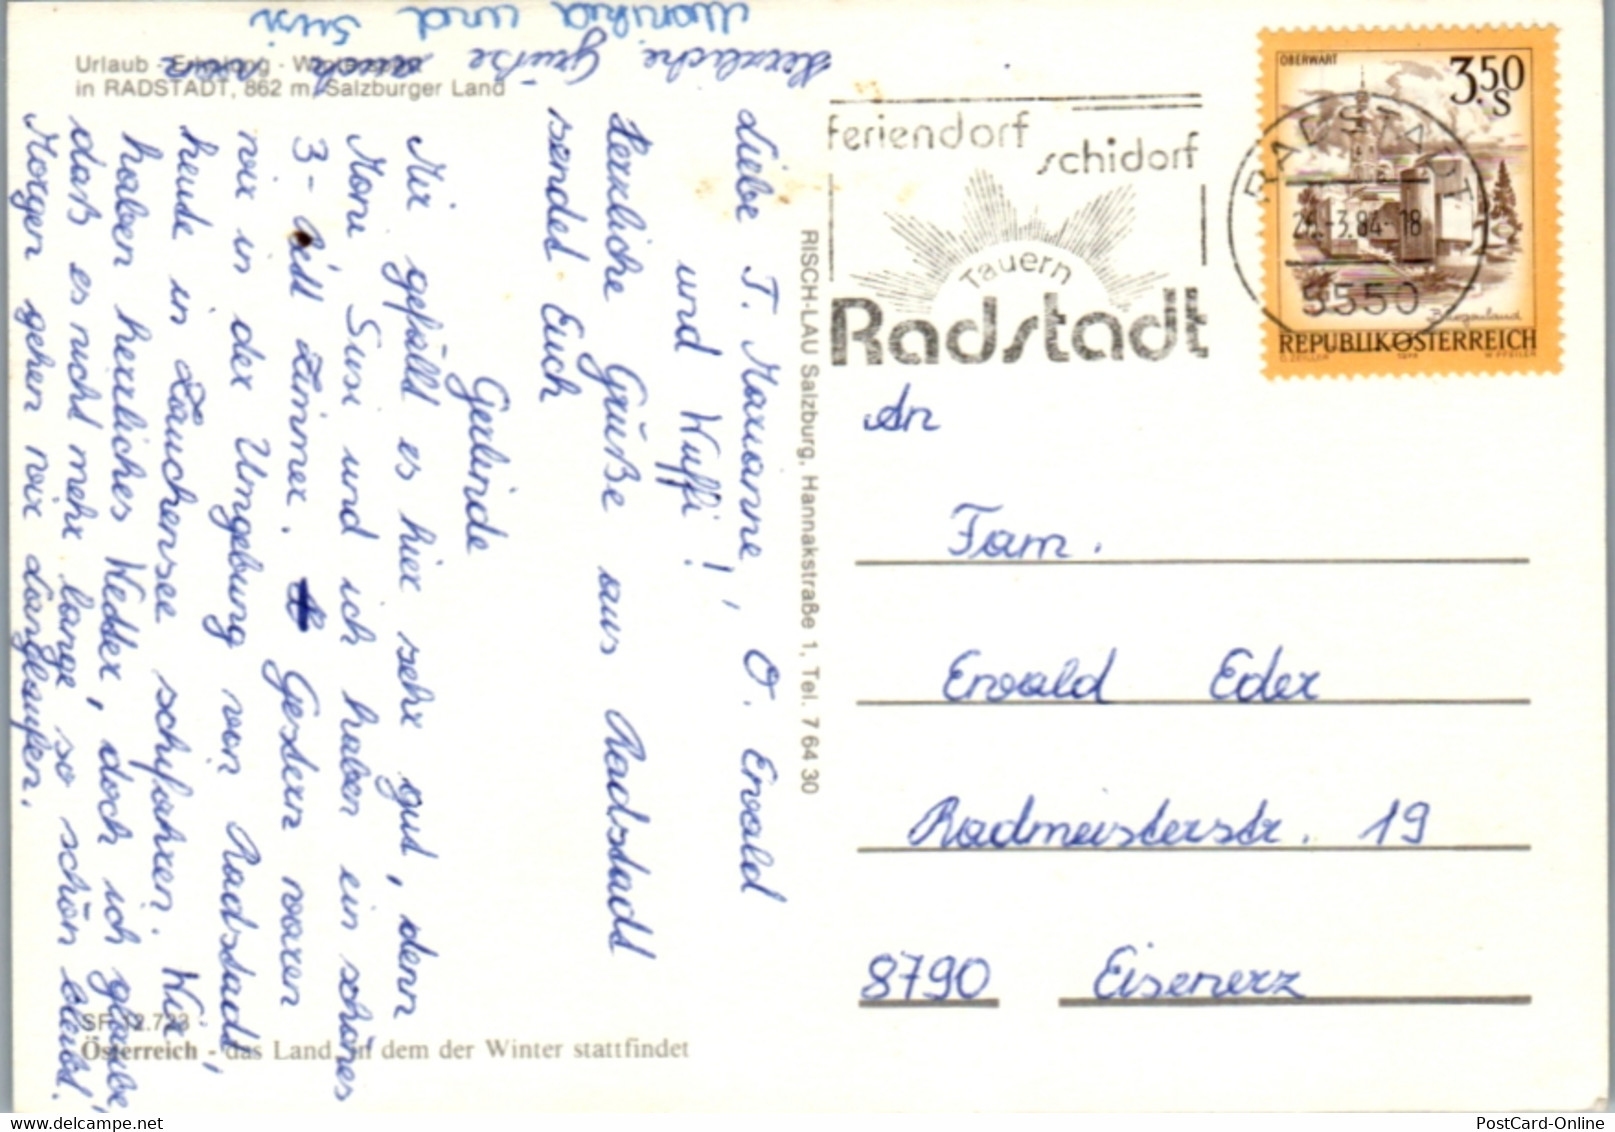 Urlaub - Erholung - Wintersport
in RADSTADT, 862 m, Salzburger Land
Liebe T. Marianne, O. Ewald
und Wuffi!
Herzliche Grüße aus Radstadt
sendet Euch
Gerlinde
Mir gefällt es hier sehr gut, denn
Moni Susi und ich haben ein schönes
3-Bett Zimmer. Gestern waren
wir in der Umgebung von Radstadt,
heute in Zauchensee schifahren. Wir
haben herrliches Wetter, doch ich glaube,
daß es nicht mehr lange so schön bleibt.
Morgen gehen wir langlaufen.
Herzliche Grüße auch von
Monika und Susi
SF 12.723
Österreich - das Land, in dem der Winter stattfindet
RISCH-LAU Salzburg, Hannakstraße 1, Tel. 7 64 30
feriendorf
schidorf
Tauern
Radstadt
RADSTADT
26.-3.84-18
5550
OBERWART
3.50
S
Burgenland
REPUBLIK ÖSTERREICH
An
Fam.
Ewald Eder
Radmeisterstr. 19
8790 Eisenerz
PostCard-Online